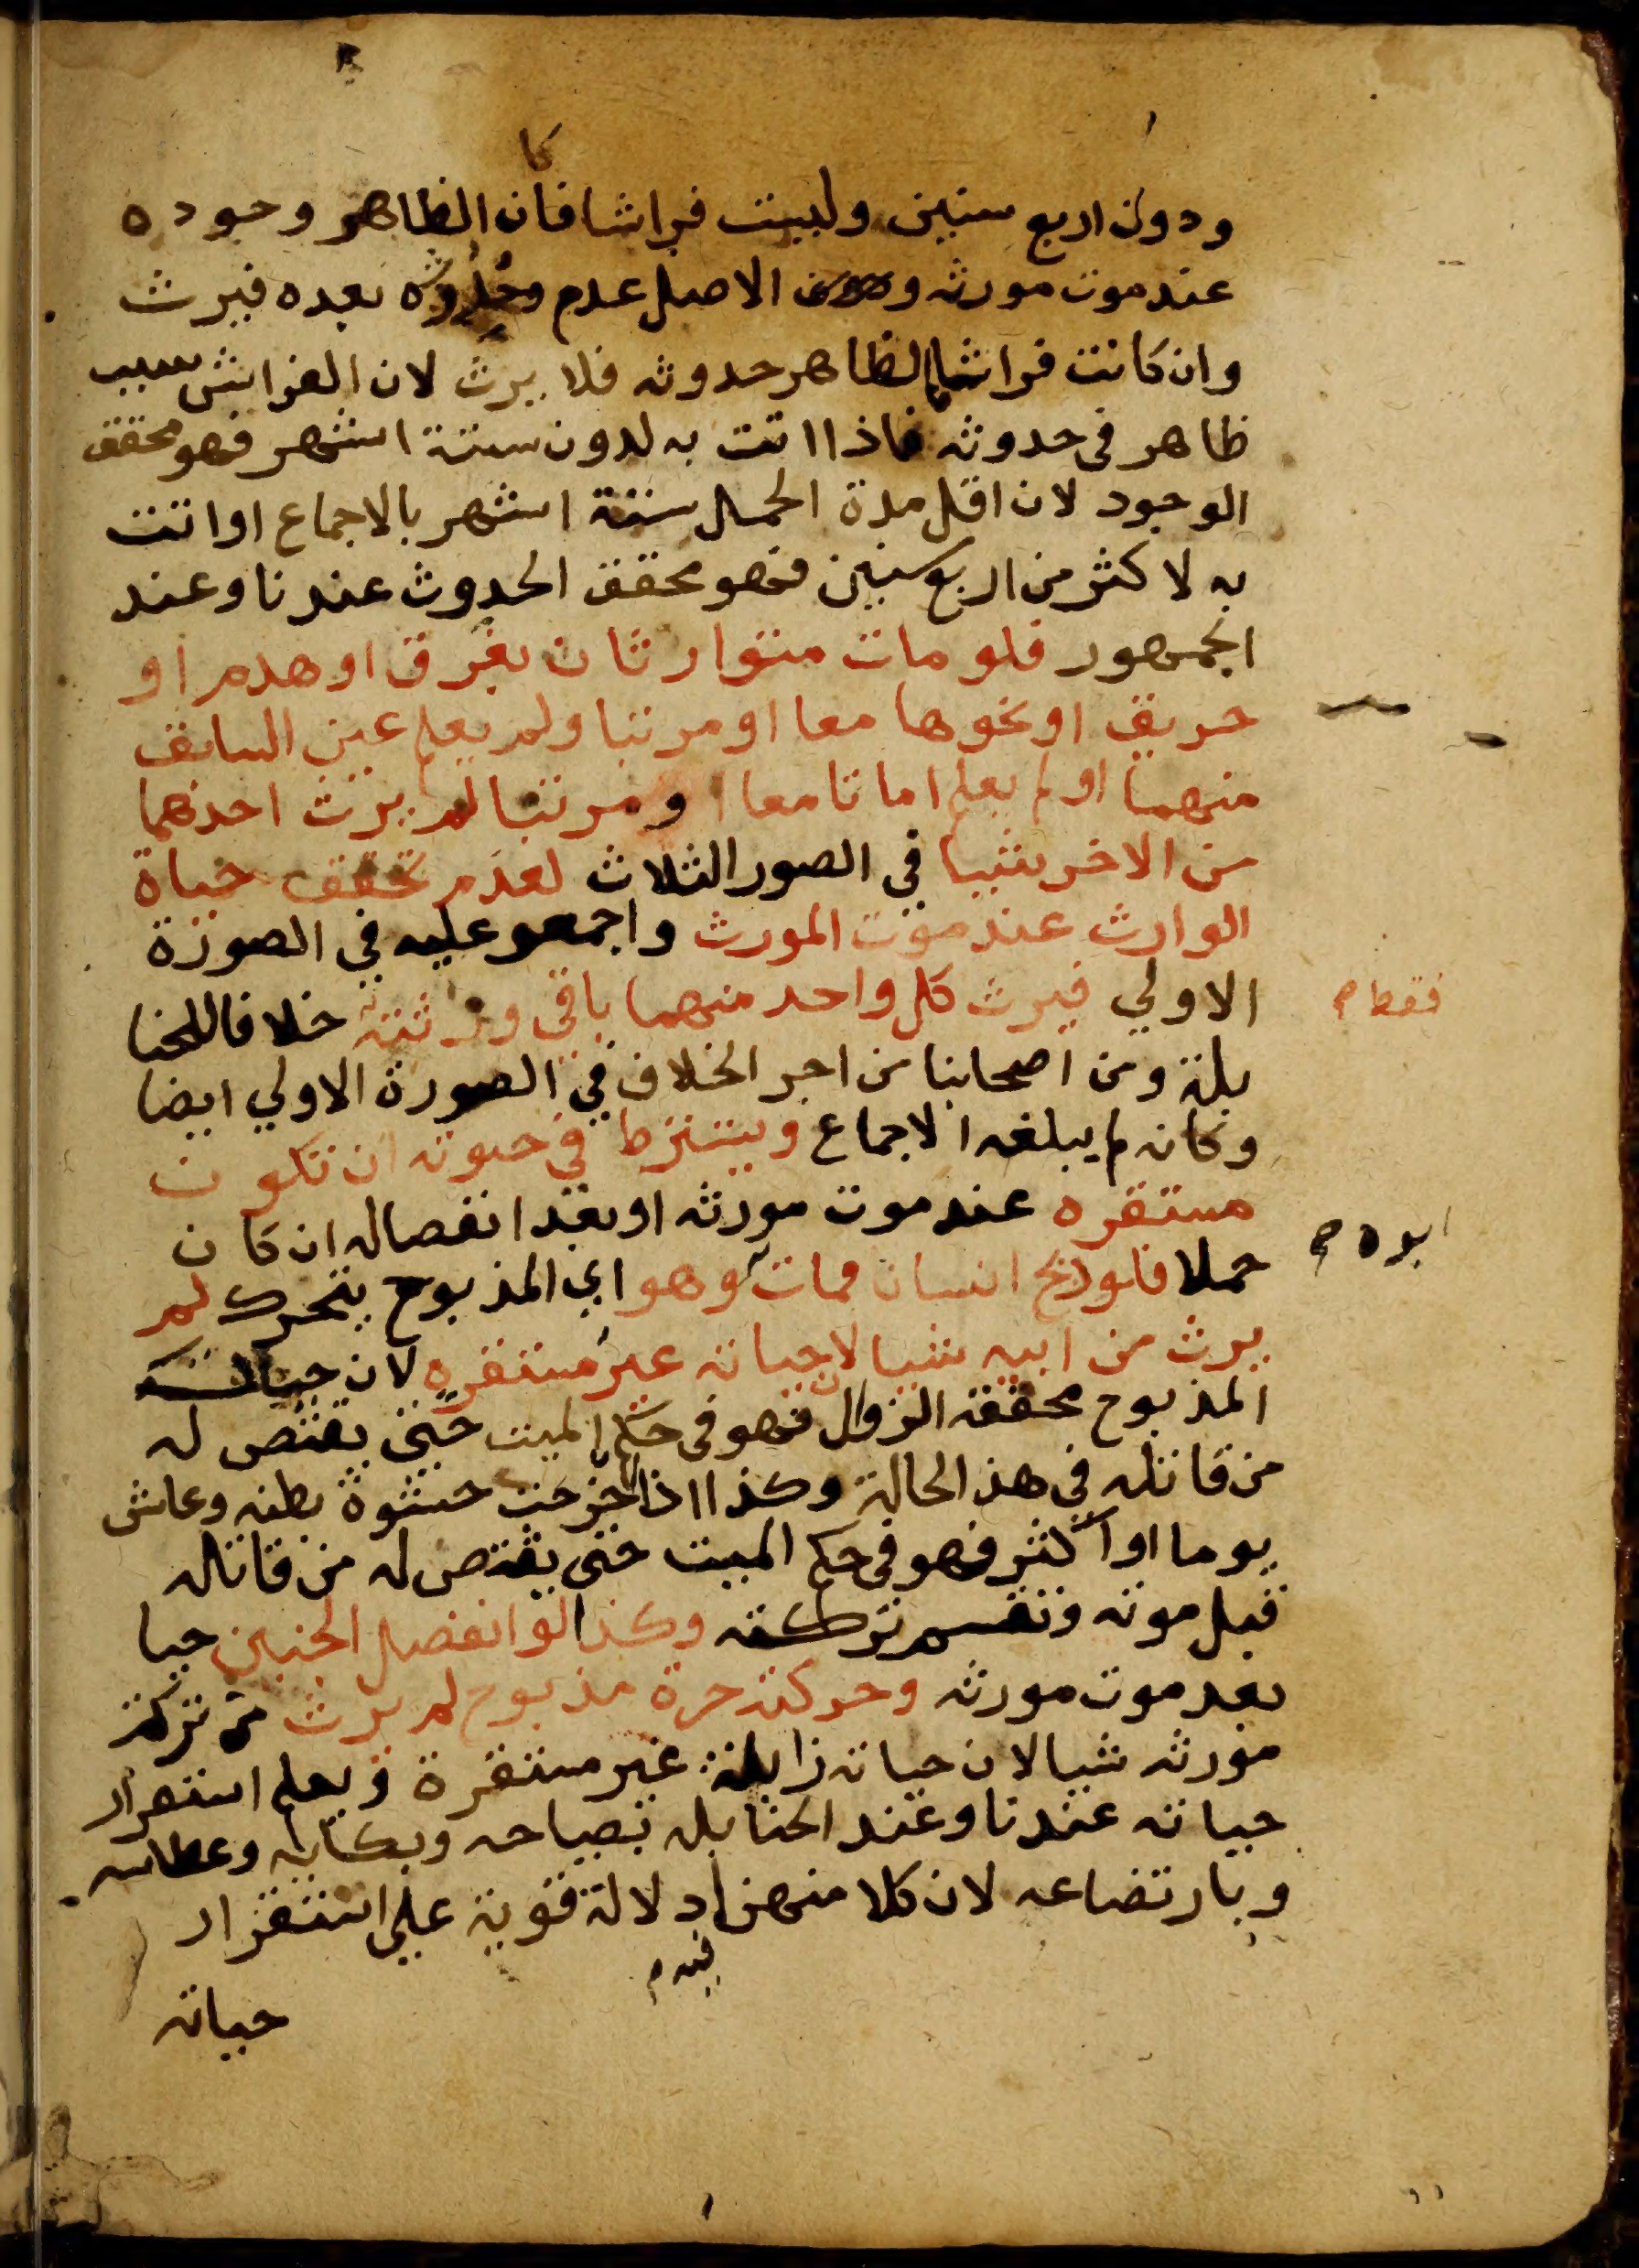 كا
ودون اربع سنين وليست فراشا فان الظاهر وجوده
عند موت مورثه و الاصل عدم حدوثه بعده فيرث
وان كانت فراشا فالظاهر حدوثه فلا يرث لان الفراش سبب
ظاهر في حدوثه فاذا اتت به لدون ستة اشهر فهو محقق
الوجود لان اقل مدة الحمل ستة اشهر بالاجماع او اتت
به لاكثر من اربع سنين فهو محقق الحدوث عندنا وعند
الجمهور فلو مات متوارثان بغرق او هدم او
حريق او نحوها معا او مرتبا ولم يعلم عين السابق
منهما او لم يعلم اماتا معا او مرتبا لم يرث احدهما
من الاخر شيا في الصور الثلاث لعدم تحقق حياة
الوارث عند موت المورث واجمعو عليه في الصورة
الاولي فيرث كل واحد منهما باقي ورثته خلافا للحنا
فقط صح
بلة ومن اصحابنا من اجر الخلاف في الصورة الاولي ايضا
وكانه لم يبلغه الاجماع ويشترط في حيوته ان تكون
مستقره عند موت مورثه او بعد انفصاله ان كان
حملا فلو ذبح انسان فمات وهو اي المذبوح يتحرك لم
ابوه صح
يرث من ابيه شيا لان حياته غير مستقره لان حياة
المذبوح محققة الزوال فهو في حكم الميت حتى يقتص له
من قاتله في هذ الحالة وكذا اذا اخرجت حشوة بطنه وعاش
يوما او اكثر فهو في حكم الميت حتى يقتص له من قاتله
قبل موته وتقسم تركته وكذا لو انفصل الجنين حيا
بعد موت مورثه وحركته حرة مذبوح لم يرث من تركة
مورثه شيا لان حياته زايلة غير مستقرة ويعلم استقرار
حياته عندنا وعند الحنابله بصياحه وبكايه وعطاسه
وبارتضاعه لان كلا منهن دلالة قوية علي استقرار
فيه م
حياته